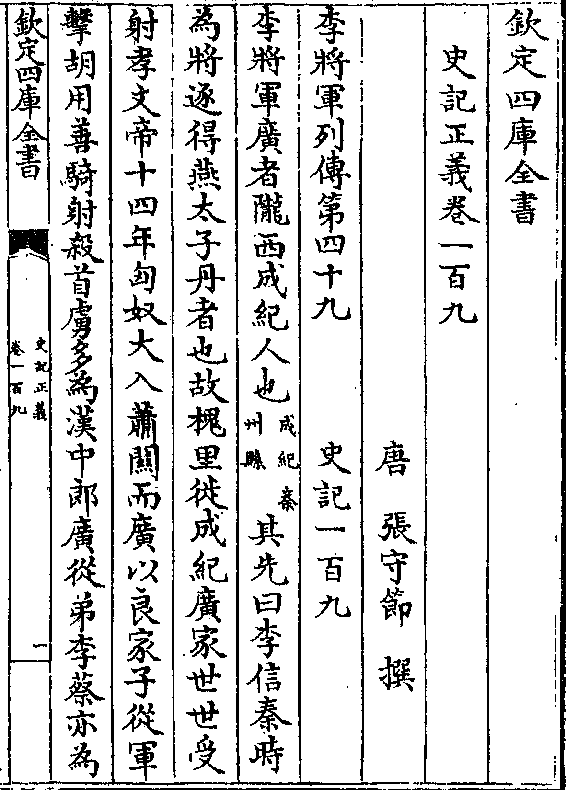 欽定四庫全書
史記正義卷一百九
唐 張守節 撰
李將軍列傳第四十九 史記一百九
李將軍廣者隴西成紀人也成紀秦州縣其先曰李信秦時
為將逐得燕太子丹者也故槐里徙成紀廣家世世受
射孝文帝十四年匈奴大入蕭關而廣以良家子從軍
擊胡用善騎射殺首虜多為漢中郎廣從弟李蔡亦為
欽定四庫全書
史記正義
卷一百九
一